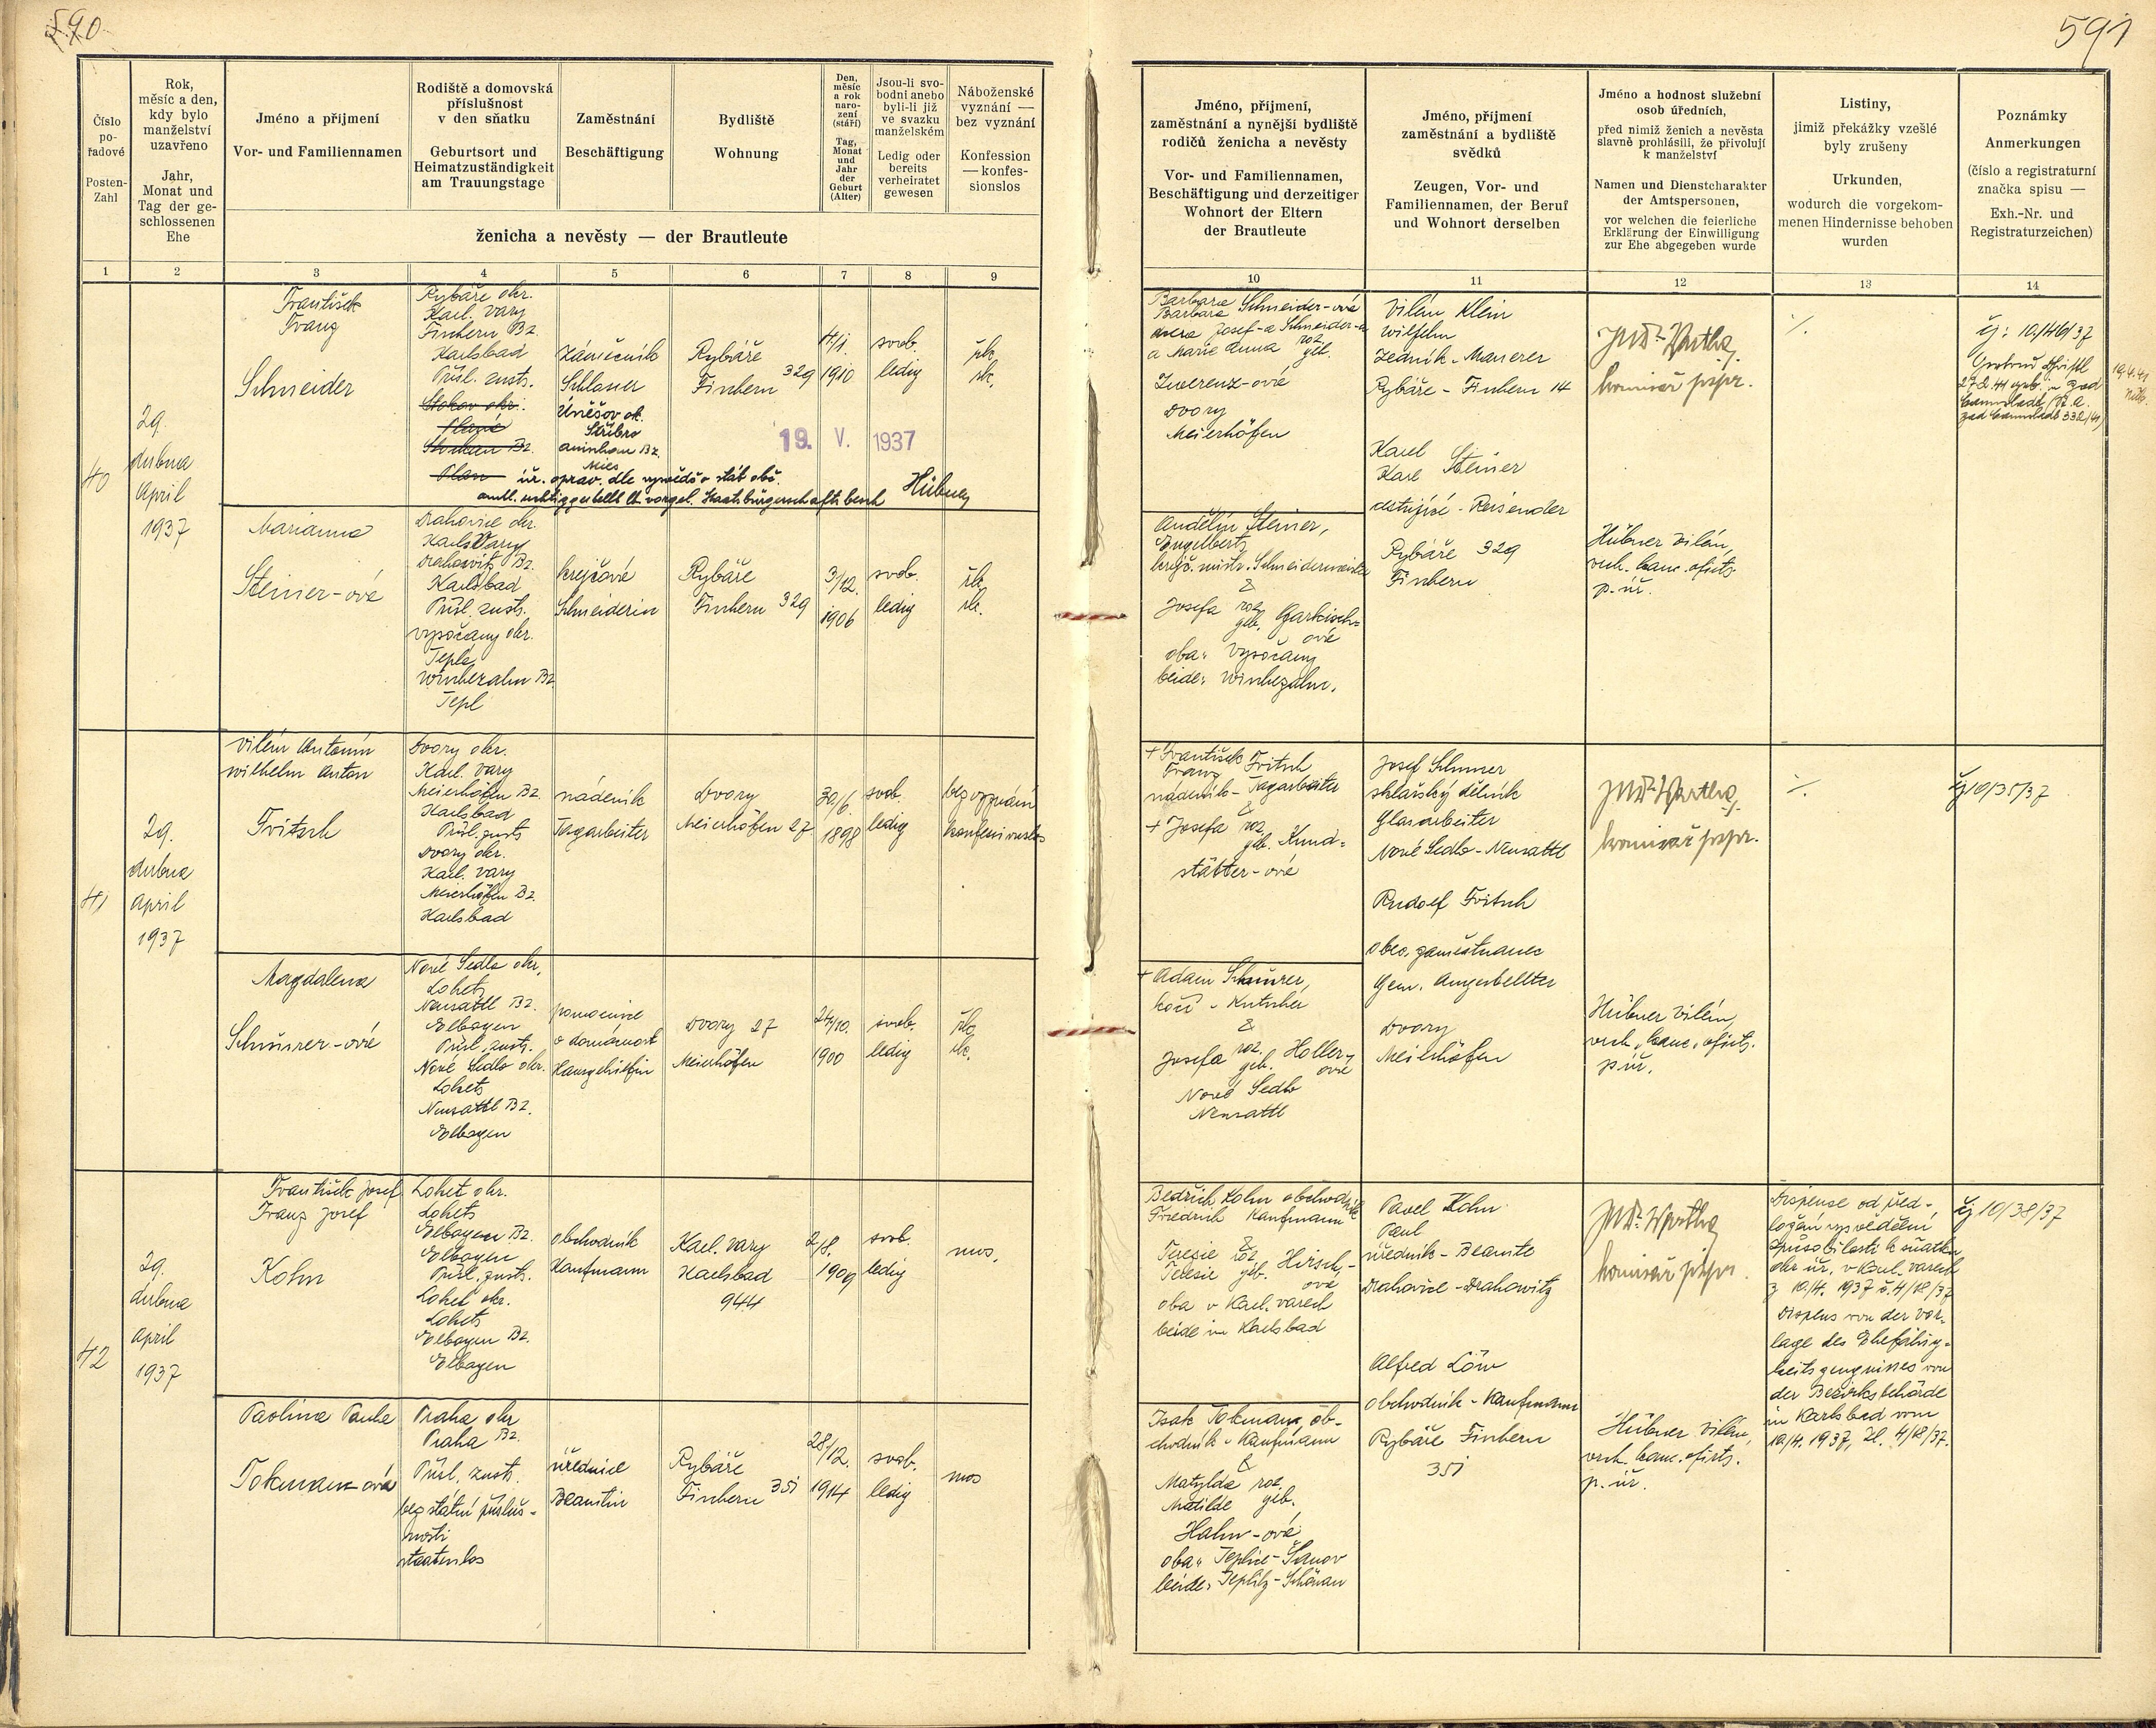 590
591
Číslo
po-
řadové
Posten-
Zahl
Rok,
měsíc a den,
kdy bylo
manželství
uzavřeno
Jahr,
Monat und
Tag der ge-
schlossenen
Ehe
Jméno a příjmení
Vor- und Familiennamen
Rodiště a domovská
příslušnost
v den sňatku
Geburtsort und
Heimatzuständigkeit
am Trauungstage
Zaměstnání
Beschäftigung
Bydliště
Wohnung
Den,
měsíc
a rok
naro-
zení
(stáří)
Tag,
Monat
und
Jahr
der
Geburt
(Alter)
Jsou-li svo-
bodni anebo
byli-li již
ve svazku
manželském
Ledig oder
bereits
verheiratet
gewesen
Náboženské
vyznání —
bez vyznání
Konfession
— konfes-
sionslos
ženicha a nevěsty — der Brautleute
Jméno, příjmení,
zaměstnání a nynější bydliště
rodičů ženicha a nevěsty
Vor- und Familiennamen,
Beschäftigung und derzeitiger
Wohnort der Eltern
der Brautleute
Jméno, příjmení
zaměstnání a bydliště
svědků
Zeugen, Vor- und
Familiennamen, der Beruf
und Wohnort derselben
Jméno a hodnost služební
osob úředních,
před nimiž ženich a nevěsta
slavně prohlásili, že přivolují
k manželství
Namen und Dienstcharakter
der Amtspersonen,
vor welchen die feierliche
Erklärung der Einwilligung
zur Ehe abgegeben wurde
Listiny,
jimiž překážky vzešlé
byly zrušeny
Urkunden,
wodurch die vorgekom-
menen Hindernisse behoben
wurden
Poznámky
Anmerkungen
(číslo a registraturní
značka spisu —
Exh.-Nr. und
Registraturzeichen)
1 2 3 4 5 6 7 8 9 10 11 12 13 14
40
29.
dubna
April
1937
František
Franz
Schneider
Rybáře okr.
Karl. Vary
Fischern Bz.
Karlsbad
Přísl. zust.
Stokov okr.
Planá
Bz.
Plan
zámečník
Schlosser
Úněšov ok.
Stříbro
Bz.
Mies
Rybáře
Fischern 329
14/1.
1910
svob.
ledig
řk.
rk.
19. V. 1937
úř. oprav. dle vysvědč. o stát. obč.
amtl. richtiggestellt lt. vorgel. Staatsbürgerschaftsbesch
Hübner
Barbara Schneider-ová
Barbara
dcera Josef-a Schneider-a
a Marie Anna roz. geb.
Zwerenz-ové
Dvory
Meierhöfen
Vilém Klein
Wilhelm
zedník - Maurer
Rybáře - Fischern 14
Karel
Karl Steiner
cestující - Reisender
Rybáře 329
Fischern
komisař
./.
čj: 10/416/37
Marianna
Steiner-ová
Drahovice okr.
Karls Vary
Drahowitz Bz.
Karlsbad
Přísl. zust.
Vysočany okr.
Teplá
Bz.
Tepl
krejčová
Schneiderin
Rybáře
Fischern 329
3/12.
1906
svob.
ledig
řk.
rk.
Andělín Steiner,
Engelbert
krejč. mistr. Schneidermeister
&
Josefa roz. geb. Garkisch-
ová
oba: Vysočany
beide:
Hübner Vilém,
vrch. kanc. ofic.
p. úř.
41
29.
dubna
April
1937
Vilém Antonín
Wilhelm Anton
Fritsch
Dvory okr.
Karl. Vary
Meierhöfen Bz.
Karlsbad
Přísl. zust.
Dvory okr.
Karl. Vary
Meierhöfen Bz.
Karlsbad
nádeník
Tagarbeiter
Dvory
Meierhöfen 27
30/6.
1898
svob.
ledig
bez vyznání
konfessionslos
+ František Fritsch
Franz
nádeník - Tagarbeiter
&
+ Josefa roz. geb. Kund-
stätter-ová
Josef Schnurer
sklářský dělník
Glasarbeiter
Nové Sedlo - Neusattl
Rudolf Fritsch
obec. zaměstnanec
Gem. Angestellter
Dvory
Meierhöfen
komisař
./.
čj 10/35/37
Magdalena
Schnürer-ová
Nové Sedlo okr.
Loket
Neusattl Bz.
Elbogen
Přísl. zust.
Nové Sedlo okr.
Loket
Neusattl Bz.
Elbogen
pomocnice
v domácnost
Hausgehilfin
Dvory 27
Meierhöfen
24/10.
1900
svob.
ledig
řk.
rk.
+ Adam Schnürer,
kočí - Kutscher
&
Josefa roz. geb. Holler-
ová
Nové Sedlo
Neusattl
Hübner Vilém,
vrch. kanc. ofic.
p. úř.
42
29.
dubna
April
1937
František Josef
Franz Josef
Kohn
Loket okr.
Loket
Elbogen Bz.
Elbogen
Přísl. zust.
Loket okr.
Loket
Elbogen Bz.
Elbogen
obchodník
Kaufmann
Karl. Vary
Karlsbad
944
2/8.
1909
svob.
ledig
mos.
Bedřich Kohn obchodník
Friedrich Kaufmann
&
Terezie roz. Hirsch-
Teresie geb. ová
oba v Karl. Varech
beide in Karlsbad
Pavel Kohn
Paul
úředník - Beamte
Drahovice - Drahowitz
Alfred Löw
obchodník - Kaufmann
Rybáře Fischern
351
komisař
Dispense od před-
ložení vysvědčení
způsobilosti k sňatku
okr. úř. v Karl. Varech
z 10/4. 1937 č. 4/18/37
Dispens von der Vor-
lage des Ehefähig-
keitszeugnisses von
der Bezirksbehörde
in Karlsbad vom
10/4. 1937, Zl. 4/18/37.
čj 10/38/37
Paolina Paula
Tokmann-ová
Praha okr
Praha Bz.
Přísl. zust.
bez státní přísluš-
nosti
staatenlos
úřednice
Beamtin
Rybáře
Fischern 351
28/12.
1914
svob.
ledig
mos
Isak Tokmann, ob-
chodník - Kaufmann
&
Matylda roz.
Matilde geb.
Hahn-ová
oba: Teplice-Šanov
beide: Teplitz-Schönau
Hübner Vilém,
vrch. kanc. ofic.
p. úř.